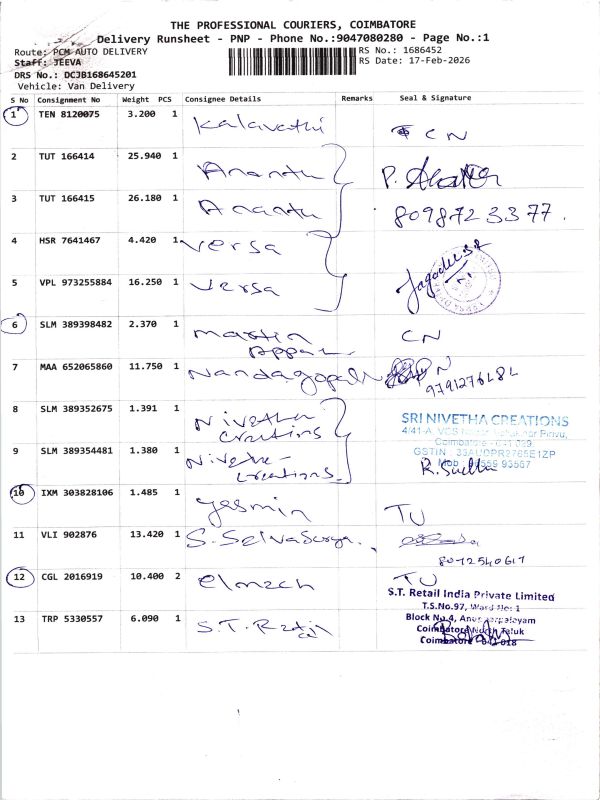 THE PROFESSIONAL COURIERS, COIMBATORE
Delivery Runsheet - PNP - Phone No.:9047080280 - Page No.:1
Route: PCM AUTO DELIVERY
RS No.: 1686452
Staff: JEEVA
RS Date: 17-Feb-2026
DRS No.: DCJB168645201
Vehicle: Van Delivery
S No Consignment No Weight PCS Consignee Details Remarks Seal & Signature
1 TEN 8120075 3.200 1 Kalavathi CN
2 TUT 166414 25.940 1 Ananth P.
3 TUT 166415 26.180 1 Ananth 8098723377.
4 HSR 7641467 4.420 1 Versa
5 VPL 973255884 16.250 1 Versa
6 SLM 389398482 2.370 1 Martin CN
Appar
7 MAA 652065860 11.750 1 Nandagopal N
9791276182
8 SLM 389352675 1.391 1 Nivetha
Creations
SRI NIVETHA CREATIONS
Coimbatore
9 SLM 389354481 1.380 1 Nivetha
Creations
R. Sudha
10 IXM 303828106 1.485 1 yasmin TU
11 VLI 902876 13.420 1 S. Selvasurya.
8072540617
12 CGL 2016919 10.400 2 elmech TU
S.T. Retail India Private Limited
T.S.No.97, Ward No: 1
13 TRP 5330557 6.090 1 S.T. Retail
Block No.4, Anupparpalayam
Coimbatore North Taluk
Coimbatore - 641 018